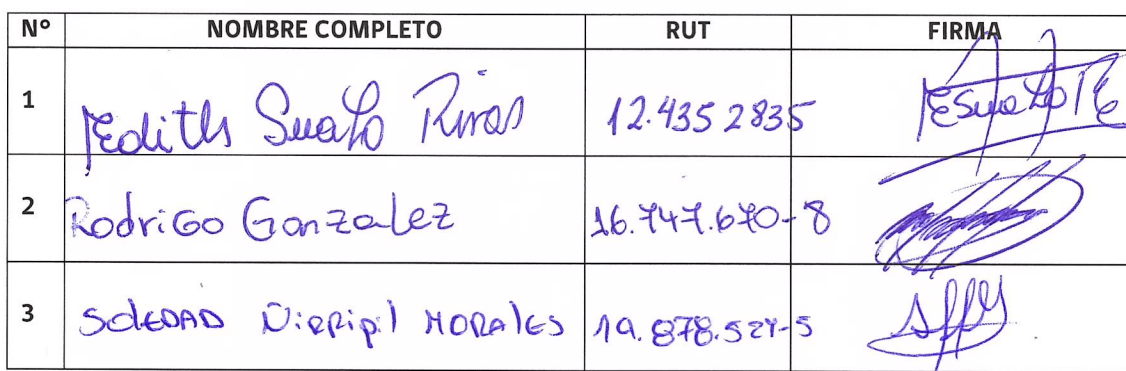 N° NOMBRE COMPLETO RUT FIRMA
1 Edith Suazo Rivas 12.435 2835
2 Rodrigo Gonzalez 16.747.670-8
3 SOLEDAD Ñirripil MORALES 19.878.524-5